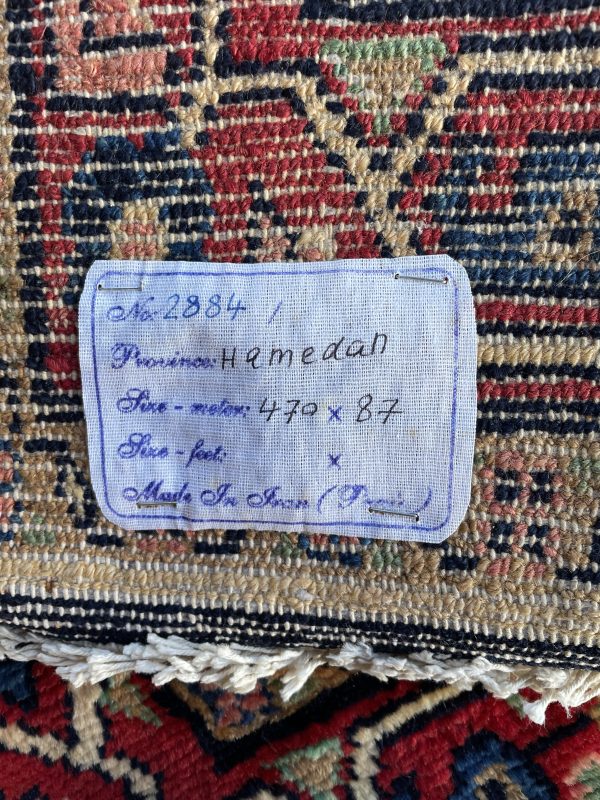 No: 2884 /
Province: Hamedan
Size - meter: 470 x 87
Size - feet: x
Made In Iran ( Persia )